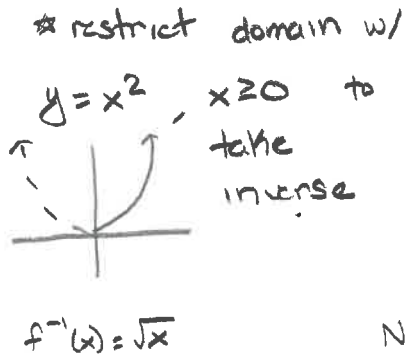 ☆ restrict domain w/
y = x², x ≥ 0 to
take
inverse
f⁻¹(x) = √x N